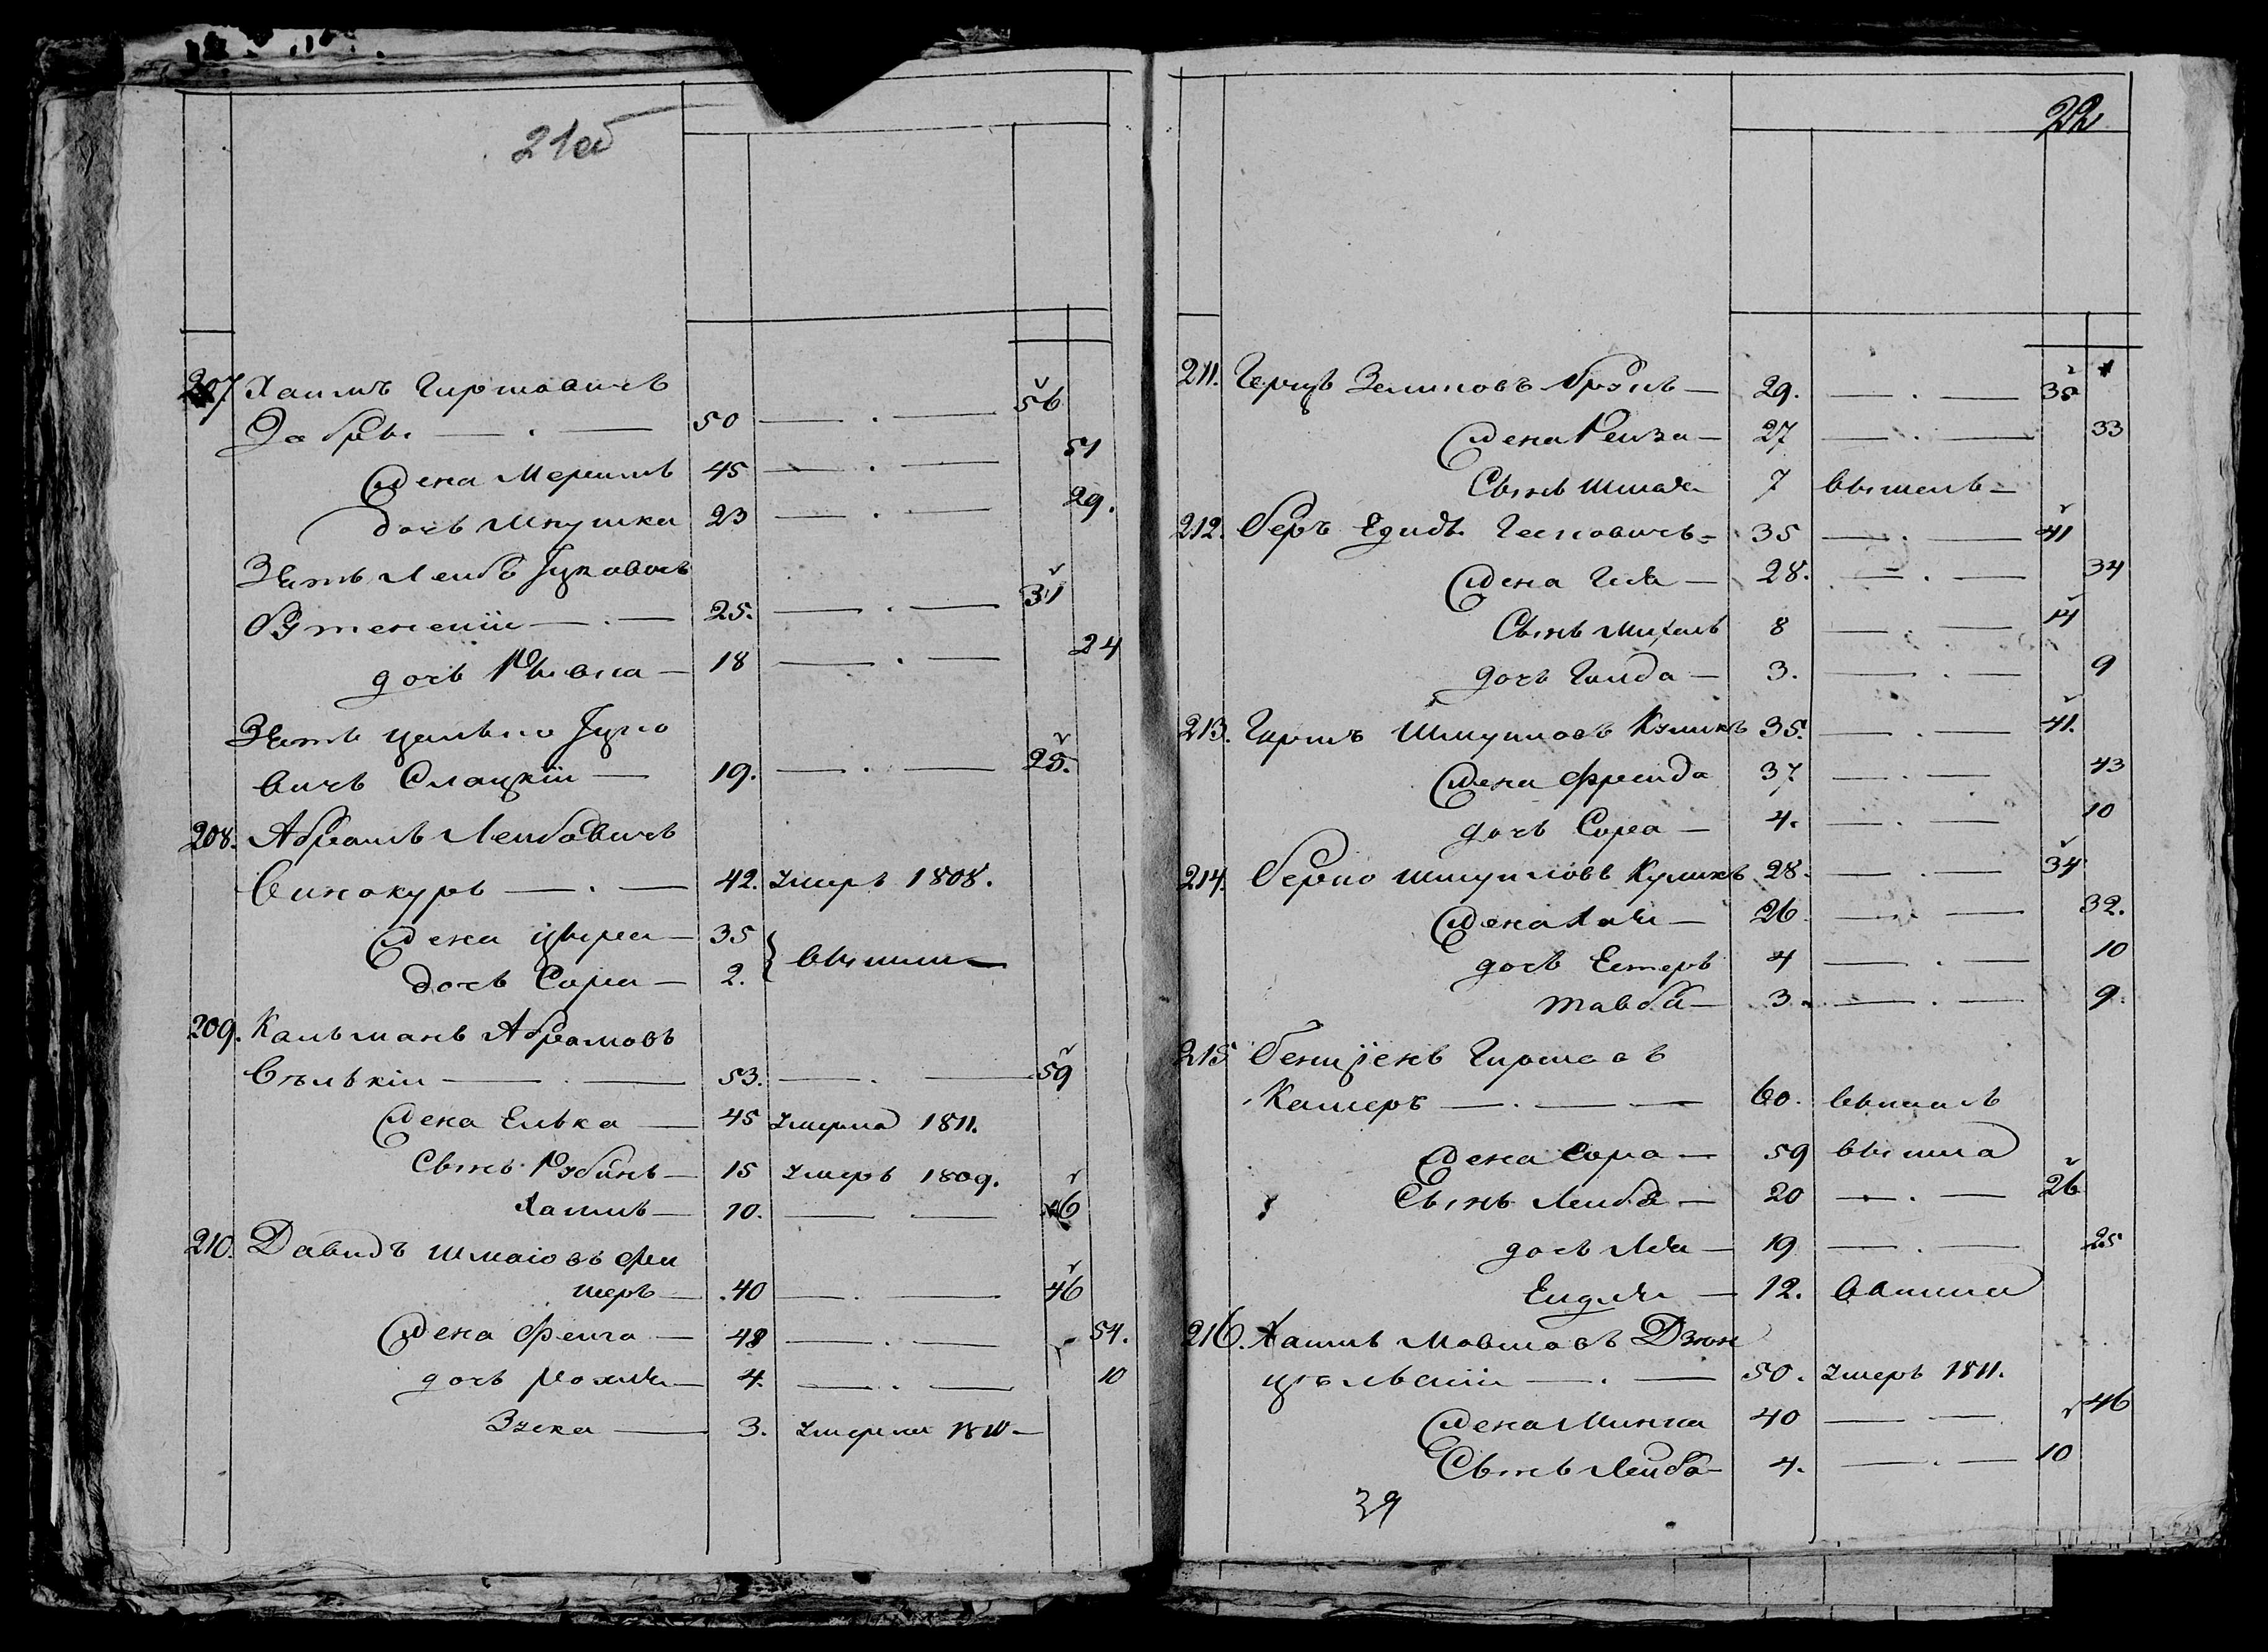 21об
207. Хаимъ Гиршовичъ
Добры — . — 50 — . — 56
Жена Меримъ 45 — . — 51
дочь Мнушка 23 — . — 29.
Зять Лейба Іцковичъ
— . — 25. — . — 31
дочь Рывка — 18 — . — 24
Зять Іцко
вичъ Слоцкій — 19. — . — 25.
208. Абрамъ Лейбовичъ
Винокуръ — . — 42. Умеръ 1808.
Жена Цыреа — 35
дочь Сора — 2. } вышли —
209. Кальманъ Абрамовъ
Бѣлькій — . — 53. — . — 59
Жена Елька — 45 Умерла 1811.
Сынъ Рубинъ — 15 Умеръ 1809.
Хаимъ — 10. — — 16
210. Давидъ Шмаіовъ Фи
шеръ — 40 — . — 46
Жена Фейга — 48 — . — 54.
дочь — 4. — . — 10
3. Умерла 1810 —
22
211. Герцъ Зеликовъ — 29. — . — 35
Жена Рейза — 27 — . — 33
Сынъ Шмая 7 вышелъ —
212. Беръ — 35 — . — 41
Жена Геля — 28. — . — 34
Сынъ Михаль 8 — . — 14
дочь Голда — 3. — . — 9
213. Гиршъ Шмуиловъ Куликъ 35. — . — 41.
Жена Фрейда 37 — . — 43
дочь Сора — 4. — . — 10
214. Берко Шмуиловъ Куликъ 28. — . — 34
Жена Хая — 26 — . — 32.
дочь Естеръ 4 — . — 10
Тавба — 3. — . — 9.
215. Гиршовъ
— . — 60. вышелъ
Жена Сора — 59 вышла
Сынъ Лейба — 20 — . — 26
дочь Лея — 19 — . — 25
12. вышла
216. Хаимъ Мовшовъ Дзен
— . — 50. Умеръ 1811.
Жена Минка 40 — — . 46
Сынъ Лейба — 4. — . — 10
39